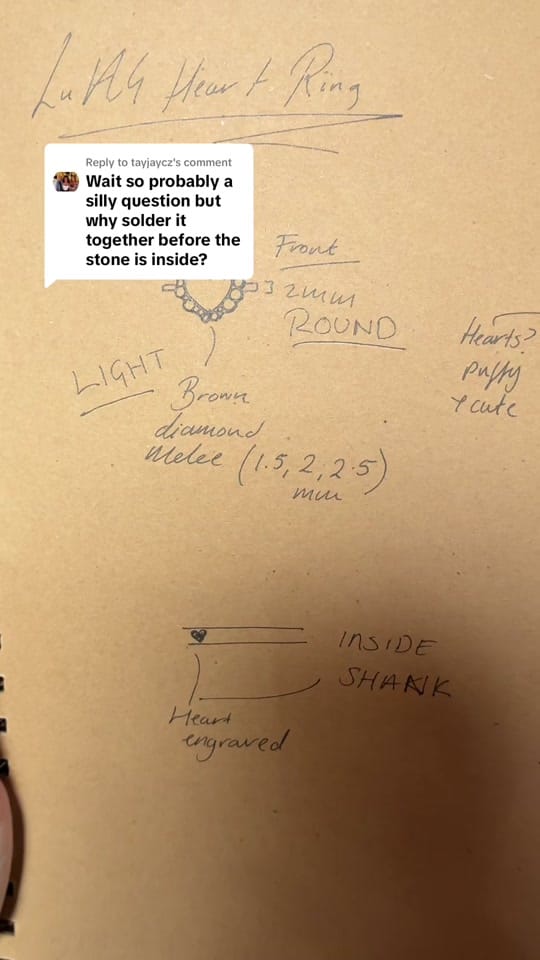 LuAG Heart Ring
Reply to tayjaycz's comment
Wait so probably a
silly question but
why solder it
together before the
stone is inside?
Front
2mm
ROUND
Hearts?
puffy
& cute
LIGHT
Brown
diamond
melee (1.5, 2, 2.5)
mm
INSIDE
SHANK
Heart
engraved